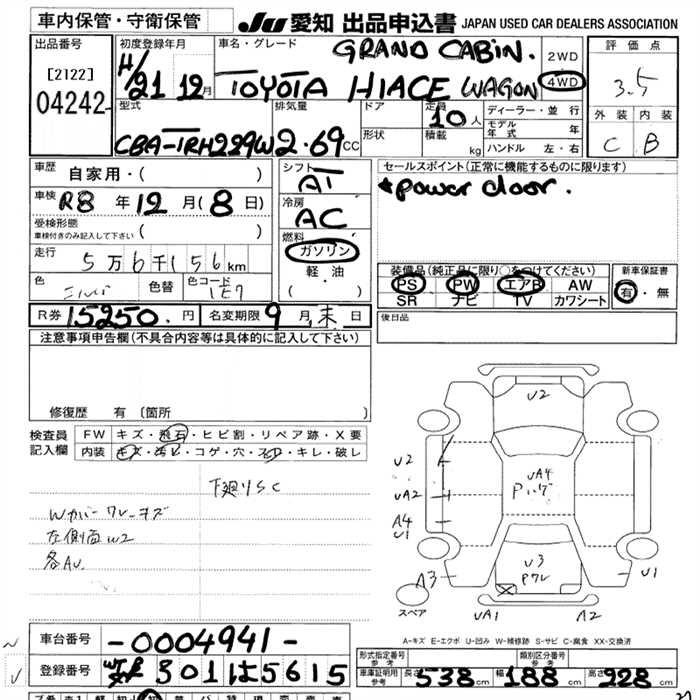 車内保管・守衛保管
JU 愛知 出品申込書 JAPAN USED CAR DEALERS ASSOCIATION
出品番号
[2122]
04242
初度登録年月
H/21 12月
車名・グレード
GRAND CABIN.
TOYOTA HIACE WAGON
2WD
4WD
評価点
3.5
外装 内装
C B
型式
CBA-TRH229W
排気量
2.69cc
ドア
形状
定員
10人
積載
kg
ディーラー・並行
モデル年式 年
ハンドル 左・右
車歴
自家用・( )
車検
R8年12月(8日)
受検形態
車検付きのみ記入して下さい ( )
走行
5万6千156km
色
色替
色コード
1E7
シフト
AT
冷房
AC
燃料
ガソリン
軽・油
( ・ )
セールスポイント(正常に機能するものに限ります)
★power door.
装備品(純正品に限り○をつけてください)
PS PW エアB AW
SR ナビ TV カワシート
新車保証書
有・無
R券 15250.円
名変期限 9月末日
後日品
注意事項申告欄(不具合内容等は具体的に記入して下さい)
修復歴 有 〔箇所 〕
検査員記入欄
FW キズ・飛石・ヒビ割・リペア跡・X要
内装 キズ・汚レ・コゲ・穴・スレ・キレ・破レ
下廻りSC
Wカバーワレ-キズ
左側面W2
各AU
U2
U2
UA2
A4
U1
A3
UA4
U3
Pワレ
U1
UA1
A2
スペア
A-キズ E-エクボ U-凹み W-補修跡 S-サビ C-腐食 XX-交換済
車台番号
-0004941-
登録番号
301 は 5615
形式指定番号
参考
類別区分番号
参考
車庫証明用
参考
長さ 538cm
幅 188cm
高さ 928cm